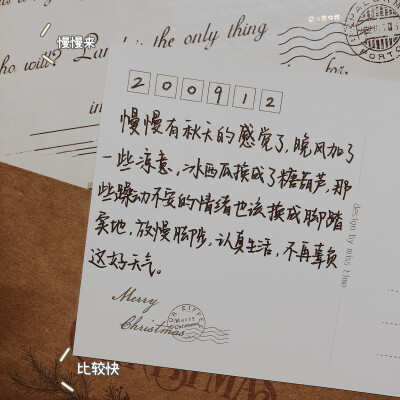 慢慢来
the only thing
who will?
for
200912
慢慢有秋天的感觉了,晚风加了
一些凉意,冰西瓜换成了糖葫芦,那
些躁动不安的情绪也该换成脚踏
实地,放慢脚步,认真生活,不再辜负
这好天气。
design by miss time
Merry
Christmas
比较快